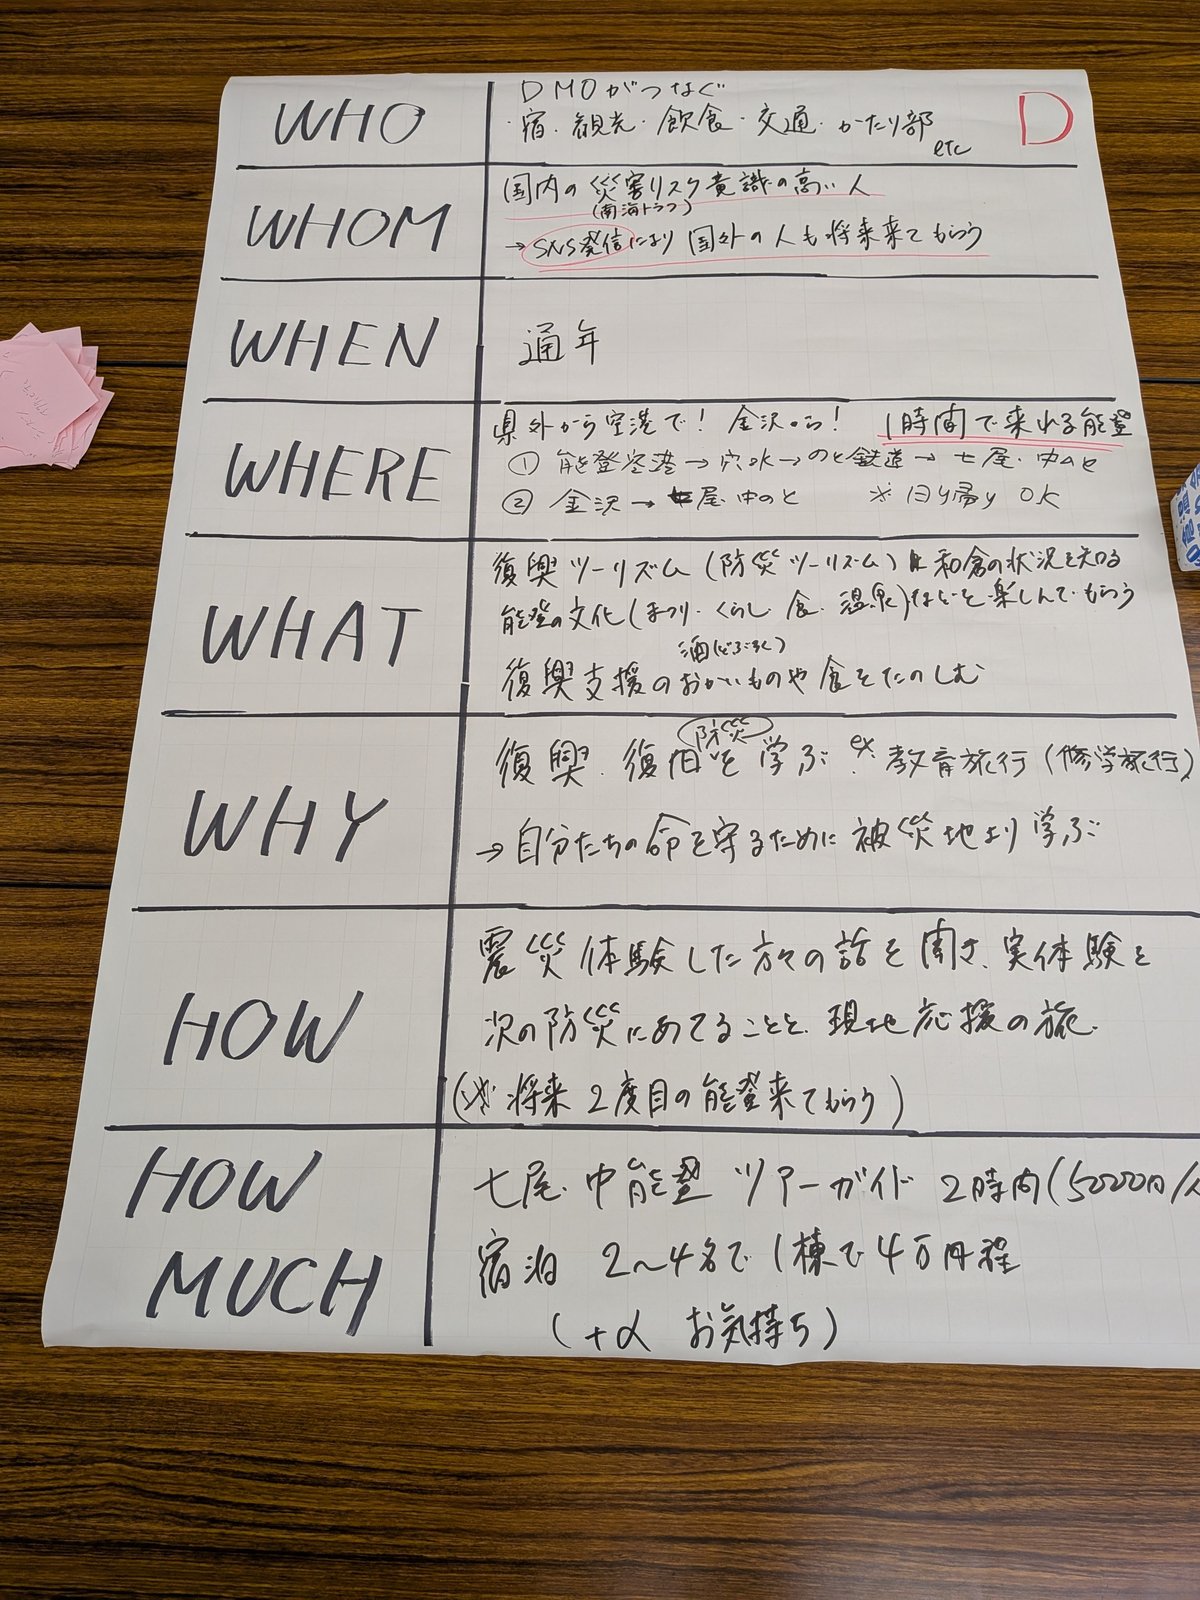 D
WHO
DMOがつなぐ
・宿・観光・飲食・交通・かたり部
etc
WHOM
国内の災害リスク意識の高い人
(南海トラフ)
→SNS発信により国外の人も将来来てもらう
WHEN
通年
WHERE
県外から空港で！金沢から！ 1時間で来れる能登
① 能登空港→穴水→のと鉄道→七尾・中のと
② 金沢→七尾・中のと ※日り帰りOK
WHAT
復興ツーリズム(防災ツーリズム) 和倉の状況を知る
能登の文化(まつり・くらし・食・温泉)などを楽しんでもらう
酒(どぶろく)
復興支援のおかいものや食をたのしむ
WHY
防災
復興・復旧を学ぶ ex. 教育旅行(修学旅行)
→自分たちの命を守るために被災地より学ぶ
HOW
震災体験した方々の話を聞き、実体験を
次の防災にあてることと、現地応援の旅。
(※将来2度目の能登来てもらう)
HOW MUCH
七尾・中能登 ツアーガイド 2時間(5000円/人
宿泊 2〜4名で1棟で4万円程
(+α お気持ち)